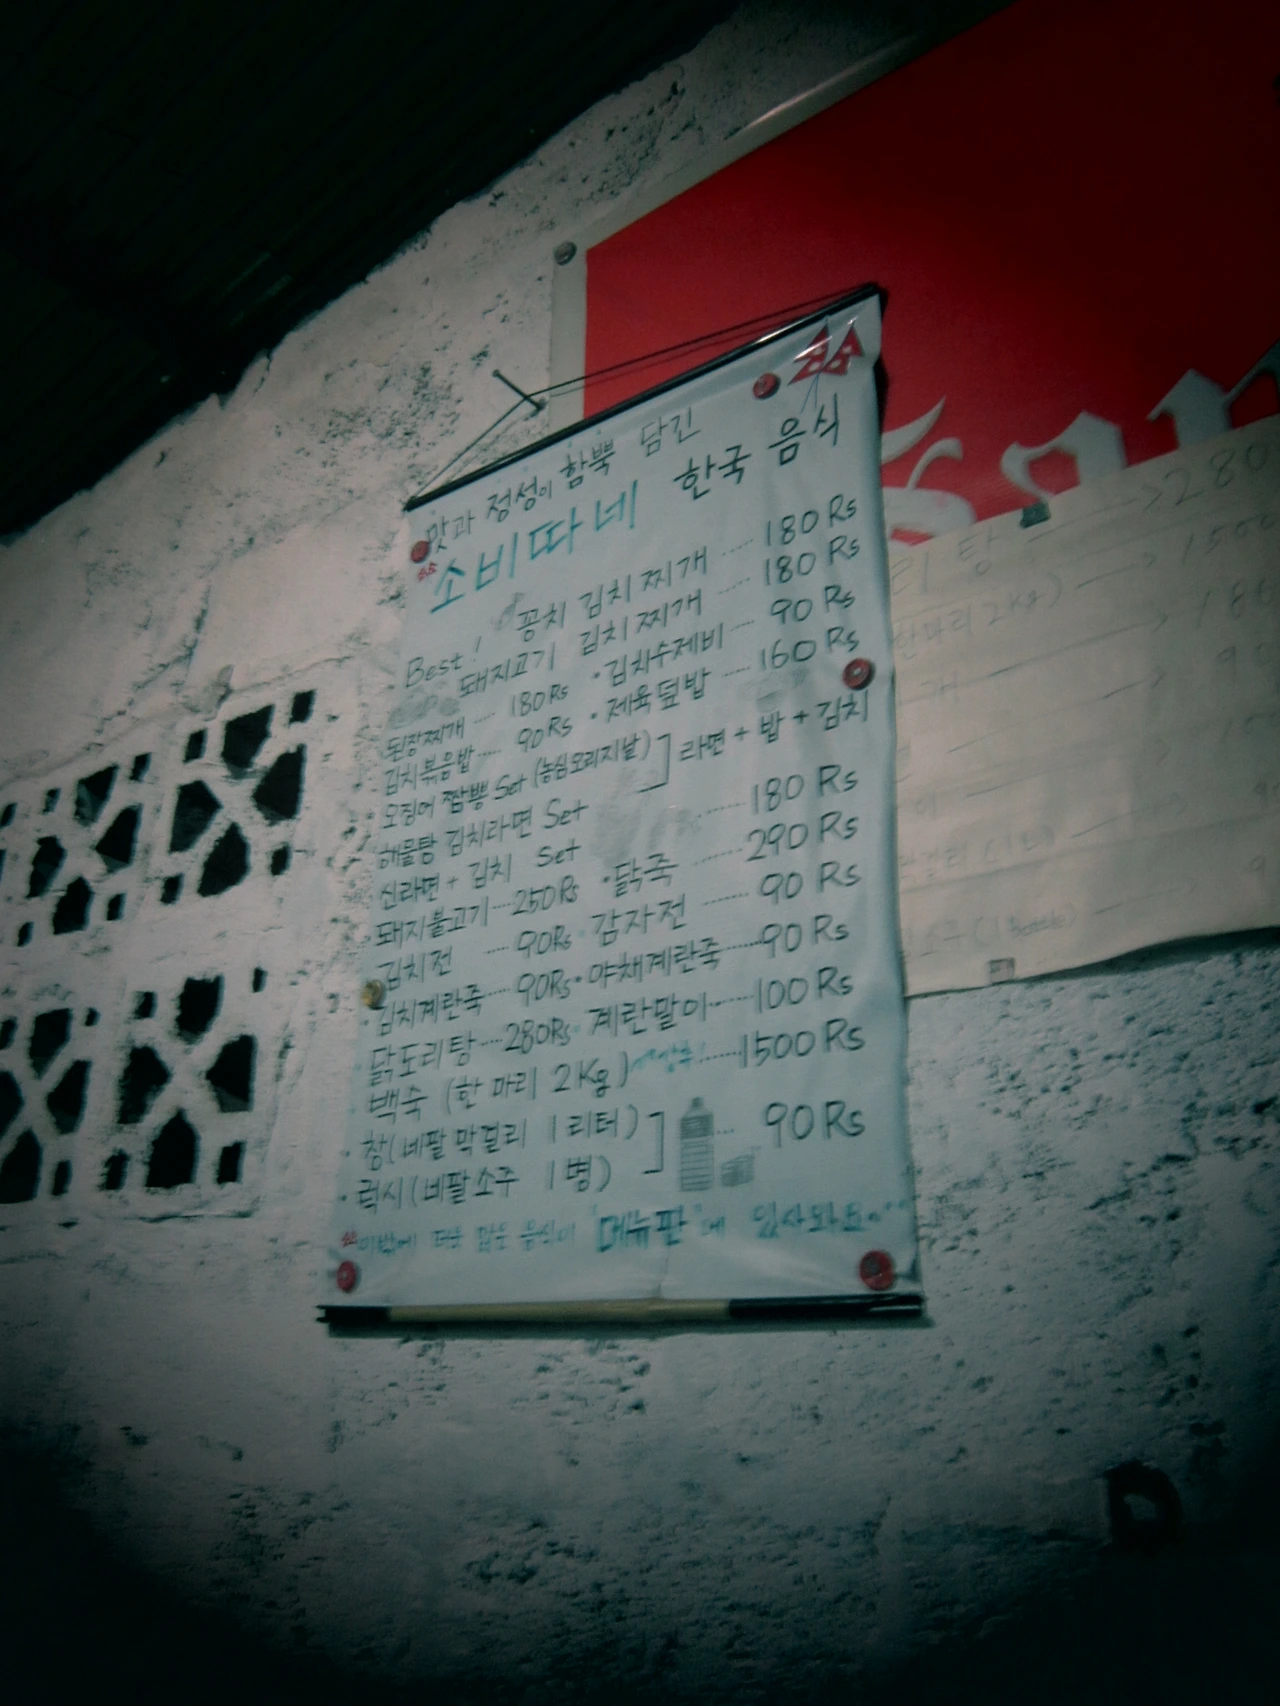 맛과 정성이 함뿍 담긴
소비따네 한국 음식
Best! 꽁치 김치 찌개 ..... 180 Rs
돼지고기 김치 찌개 ..... 180 Rs
된장찌개 .... 180 Rs · 김치수제비 .... 90 Rs
김치볶음밥 .... 90 Rs · 제육덮밥 .... 160 Rs
오징어 짬뽕 Set (농심오리지날)
해물탕 김치라면 Set ] 라면 + 밥 + 김치
신라면 + 김치 Set ...... 180 Rs
돼지불고기 .... 250 Rs · 닭죽 ...... 290 Rs
김치전 .... 90 Rs · 감자전 ...... 90 Rs
· 김치계란죽 .... 90 Rs · 야채계란죽 ...... 90 Rs
닭도리탕 .... 280 Rs · 계란말이 ...... 100 Rs
· 백숙 (한 마리 2 Kg) ...... 1500 Rs
· 창 (네팔 막걸리 1 리터)
· 럭시 (네팔 소주 1 병) ] .... 90 Rs
이밖에 더욱 많은 음식이 "메뉴판"에 있사와요...
리탕 → 280
한마리 2 Kg) → 1500